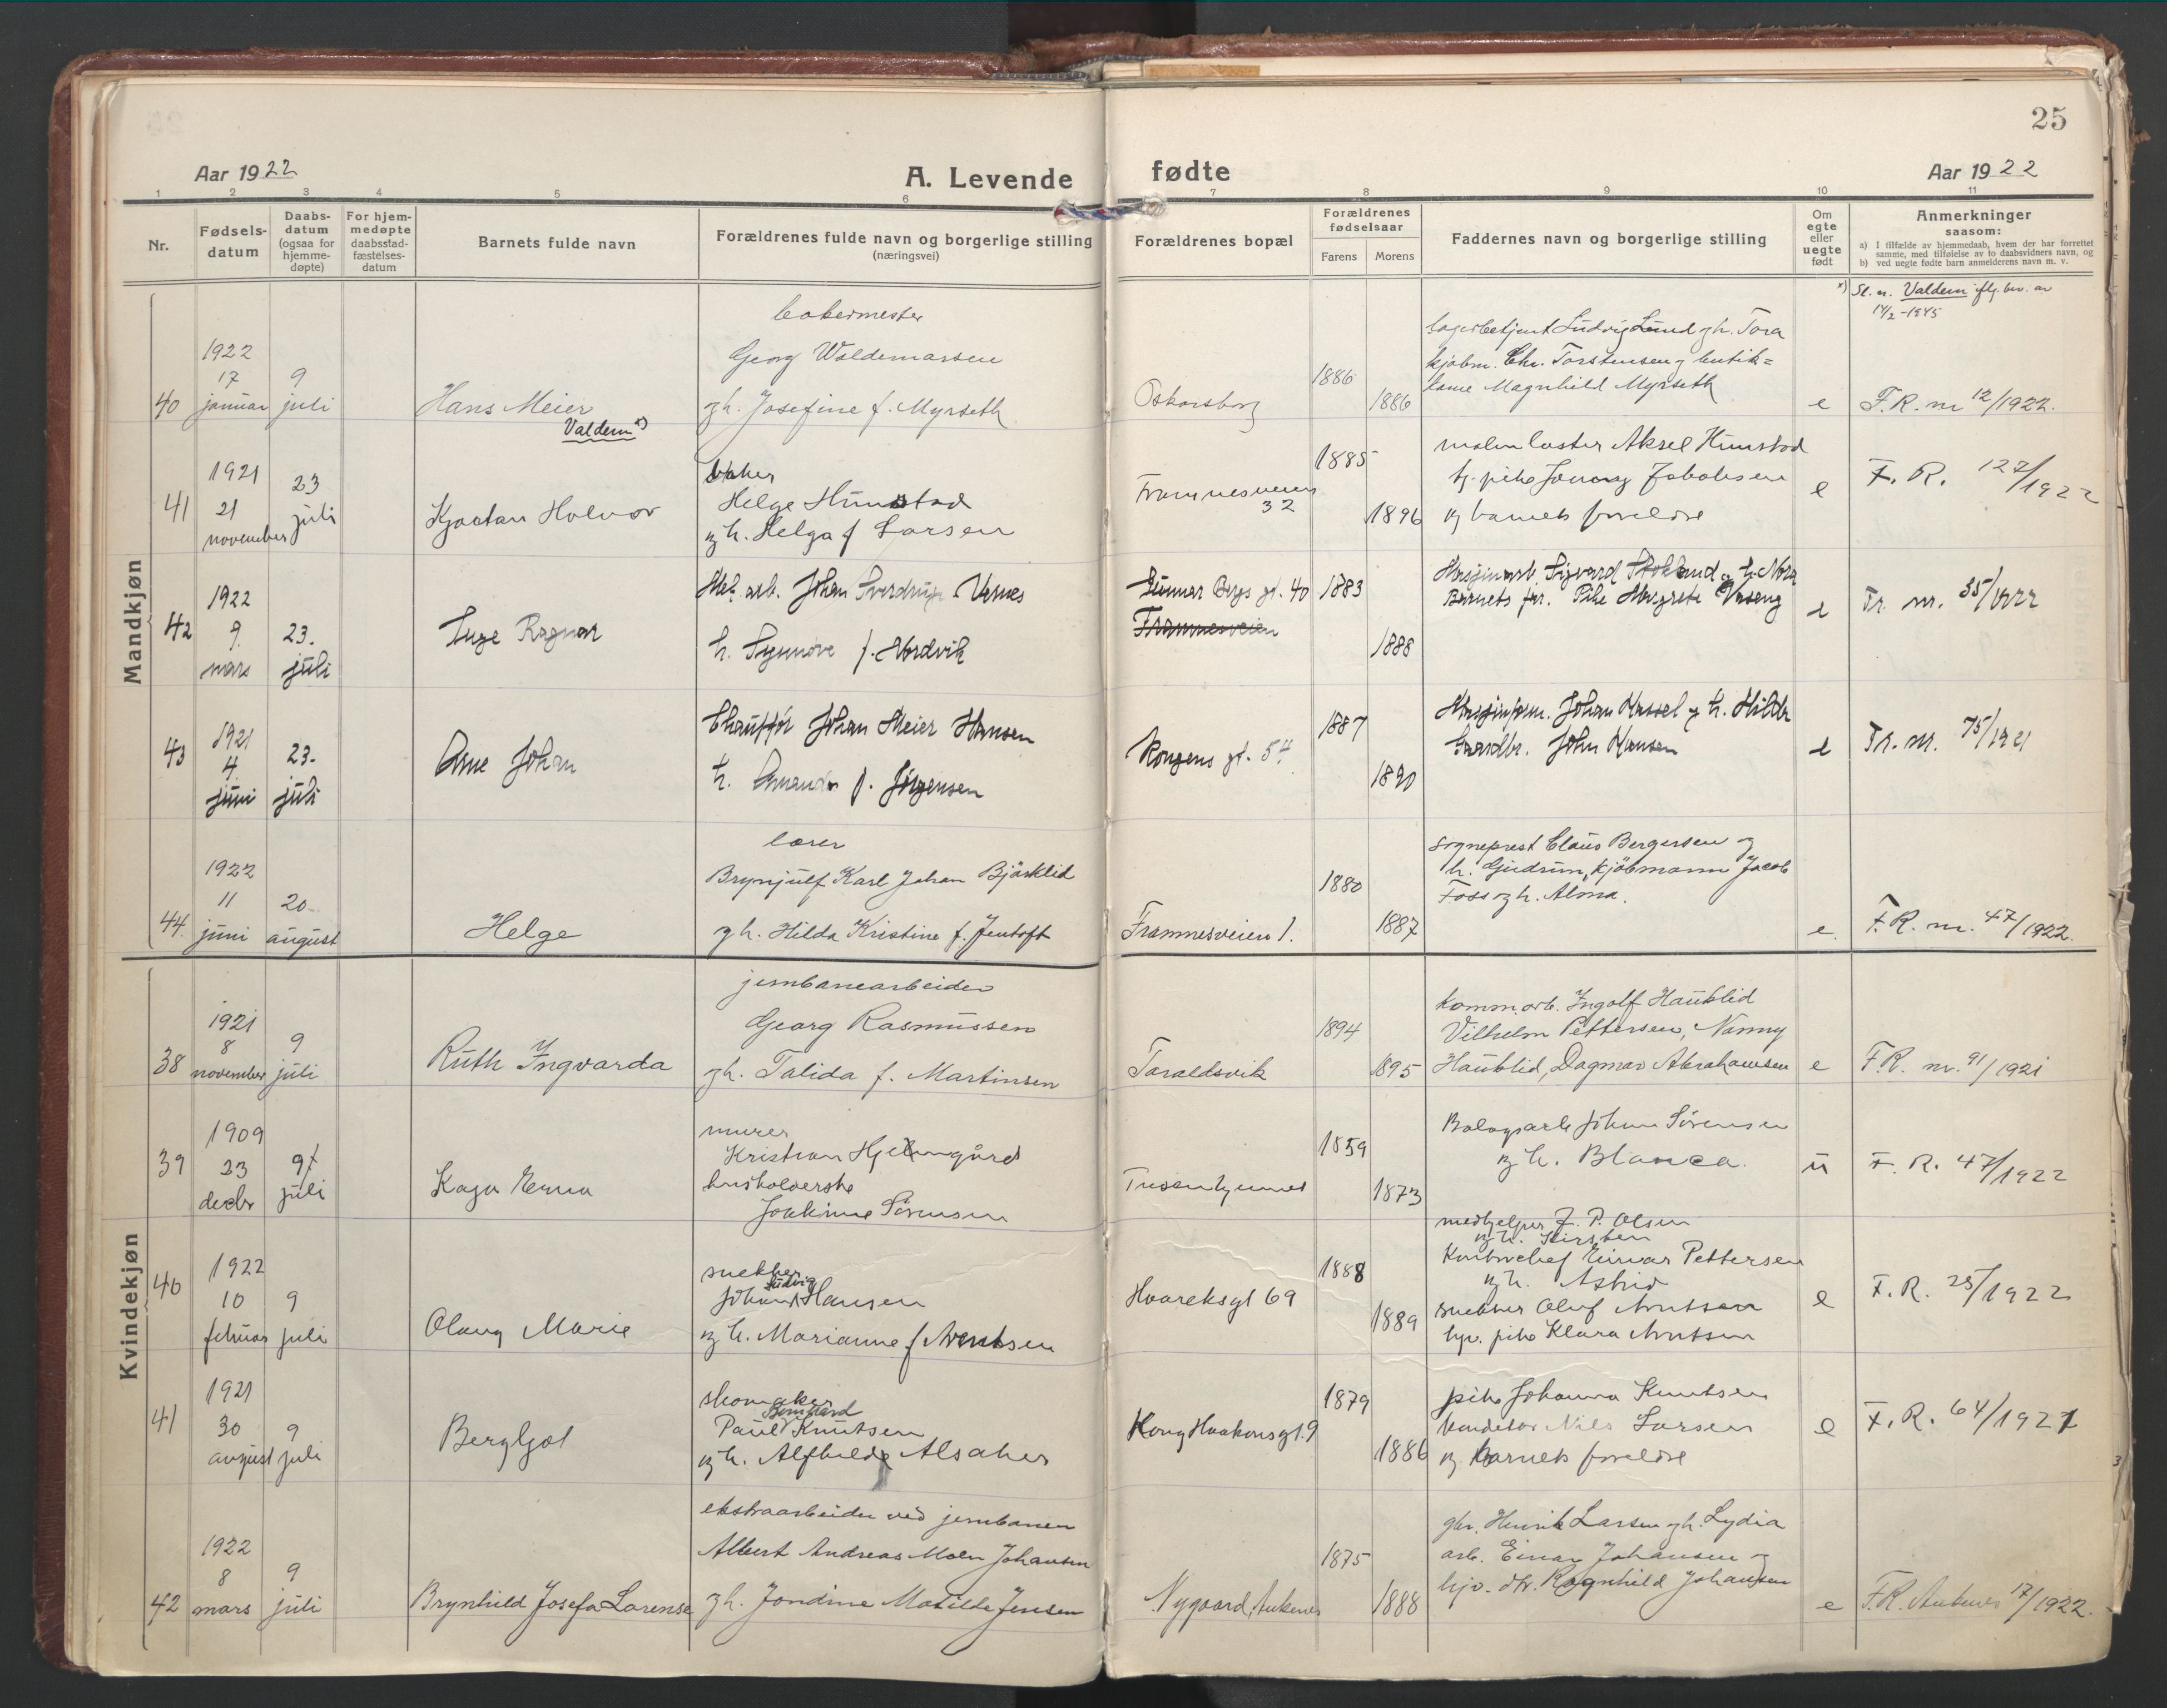 25
Aar 1922
A. Levende fødte
Aar 1922
1 2 3 4 5 6 7 8 9 10 11
Nr.
Fødsels-
datum
Daabs-
datum
(ogsaa for
hjemme-
døpte)
For hjem-
medøpte
daabsstad-
fæstelses-
datum
Barnets fulde navn
Forældrenes fulde navn og borgerlige stilling
(næringsvei)
Forældrenes bopæl
Forældrenes
fødselsaar
Farens Morens
Faddernes navn og borgerlige stilling
Om
egte
eller
uegte
født
Anmerkninger
saasom:
a) I tilfælde av hjemmedaab, hvem der har forrettet
samme, med tilføielse av to daabsvidners navn, og
b) ved uegte fødte barn anmelderens navn m. v.
Mandkjøn
40
1922
17
januar
9
juli
Hans Meier
Valdem x)
bakermester
Georg Waldemarsen
og h. Josefine f. Myrseth
Oskarsborg
1886
1886
lagerbetjent Ludvig Lund og h. Tora
kjøbm. Chr. Torstensen og butik=
dame Magnhild Myrseth
e
x) Sl. n. Valdem iflg. bev. av
14/2-1945
F. R. nr 12/1922.
41
1921
21
november
23
juli
Kjartan Halvor
baker
Helge Hunstad
og h. Helga f Larsen
Framnesveien
32
1885
1896
malmlaster Aksel Hunstad
og barnets foreldre
e
F. R. 127/1922
42
1922
9.
mars
23.
juli
Inge Ragnar
Johan Sverdrup Vernes
h. Synnøve f. Nordvik
Gunnar Bergs gt. 40
Framnesveien
1883
1888
Sigvard Stokland og h. Nora
Barnets far. Pike Margrete
e
Fr. nr. 35/1922
43
1921
4.
juni
23.
juli
Arne Johan
Chauffør Johan Meier Hansen
h. Amanda f. Jørgensen
Kongens gt. 54
1887
1890
Johan Kassel og h. Hilda
Gaardbr. John Hansen
e
Fr. nr. 75/1921
44.
1922
11
juni
20
august
Helge
lærer
Brynjulf Karl Johan Bjørklid
og h. Hilda Kristine f. Jentoft
Framnesveien 1.
1880
1887
sogneprest Claus Bergersen og
h. Gudrun, kjøbmann Jacob
Foss og h. Alma.
e.
F. R. nr. 47/1922.
Kvindekjøn
38
1921
8
november
9
juli
Ruth Ingvarda
jernbanearbeider
Georg Rasmussen
og h. Talida f. Martinsen
Taraldsvik
1894
1895
komm. arb. Ingolf Haublid
Vilhelm Pettersen, Nanny
Haublid, Dagmar Abrahamsen
e
F.R. nr. 91/1921
39
1909
23
decbr
9
juli
Kaja Erna
murer
Kristian Hjelmgård
husholderske
Joakime Sørensen
Tusenhjemmet
1859
1873
Bolagsarb Johan Sörensen
og h. Blanca.
u
F. R. 47/1922
40
1922
10
februar
9
juli
Olaug Marie
snekker
Ludvig
Johan Hansen
og h. Marianne f Arentsen
Havneksgt 69
1888
1889
medhjelper J. P. Olsen
og h. Kirsten
Kontorchef Einar Pettersen
og h. Astrid
snekker Oluf Arntsen
hjv. pike Klara Arntsen
e
F. R. 25/1922
41
1921
30
august
9
juli
Bergljot
skomaker
Bernhard
Paul Knutsen
og h. Alfhilde Alsaker
Kong Haakonsgt. 9
1879
1886
pike Johanna Knutsen
konduktør Nils Larsen
og barnets foreldre
e
F. R. 64/1921
42
1922
8
mars
9
juli
Brynhild Josefa Lorense
ekstraarbeider ved jernbanen
Albert Andreas Moen Johansen
og h. Jondine Matilde Jensen
Nygaard, Ankenes
1875
1888
gbr. Henrik Larsen og h. Lydia
arb. Einar Johansen og
hjv. dtr. Ragnhild Johansen
e
F.R. Ankenes 17/1922.